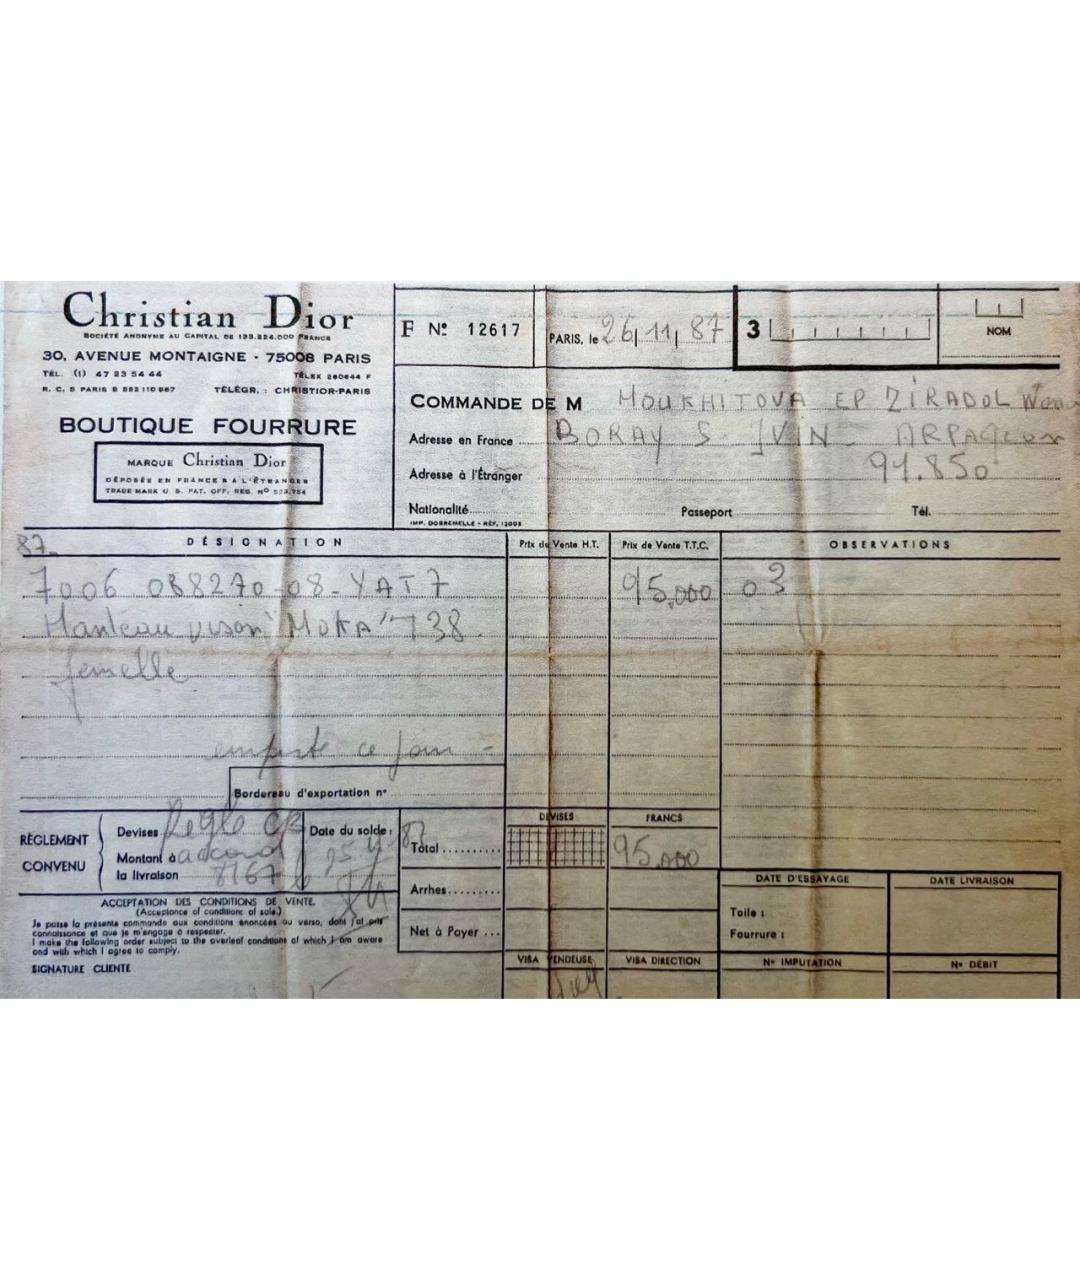 Christian Dior
SOCIÉTÉ ANONYME AU CAPITAL DE 193.224.000 FRANCS
30, AVENUE MONTAIGNE - 75008 PARIS
TÉL. (1) 47 23 54 44 TÉLEX 260644 F
R. C. S PARIS B 582 110 987 TÉLÉGR. : CHRISTIOR-PARIS
BOUTIQUE FOURRURE
MARQUE Christian Dior
DÉPOSÉE EN FRANCE & A L'ÉTRANGER
TRADE MARK U. S. PAT. OFF. REG. Nº 523.754
F Nº 12617
PARIS, le 26/11/87
3
NOM
COMMANDE DE M MOUKHITOVA EP ZIRADOL
Adresse en France BORAY S JVIN ARPAGEON
Adresse à l'Étranger 91.850
Nationalité Passeport Tél.
IMP. DOBREMELLE - RÉF. 12003
87.
DÉSIGNATION Prix de Vente H.T. Prix de Vente T.T.C. OBSERVATIONS
7006 088270-08-YAT7 95.000 03
Manteau vison MOKA T38
femelle
emporté ce jour -
Bordereau d'exportation nº
RÈGLEMENT CONVENU
Devises Réglé CB
Montant à la livraison accord
8167
Date du solde : 87
DEVISES FRANCS
Total 95.000
Arrhes
Net à Payer ...
ACCEPTATION DES CONDITIONS DE VENTE
(Acceptance of conditions of sale.)
Je passe la présente commande aux conditions énoncées au verso, dont j'ai pris
connaissance et que je m'engage à respecter.
I make the following order subject to the overleaf conditions of which I am aware
and with which I agree to comply.
SIGNATURE CLIENTE
VISA VENDEUSE VISA DIRECTION
DATE D'ESSAYAGE DATE LIVRAISON
Toile :
Fourrure :
Nº IMPUTATION Nº DÉBIT